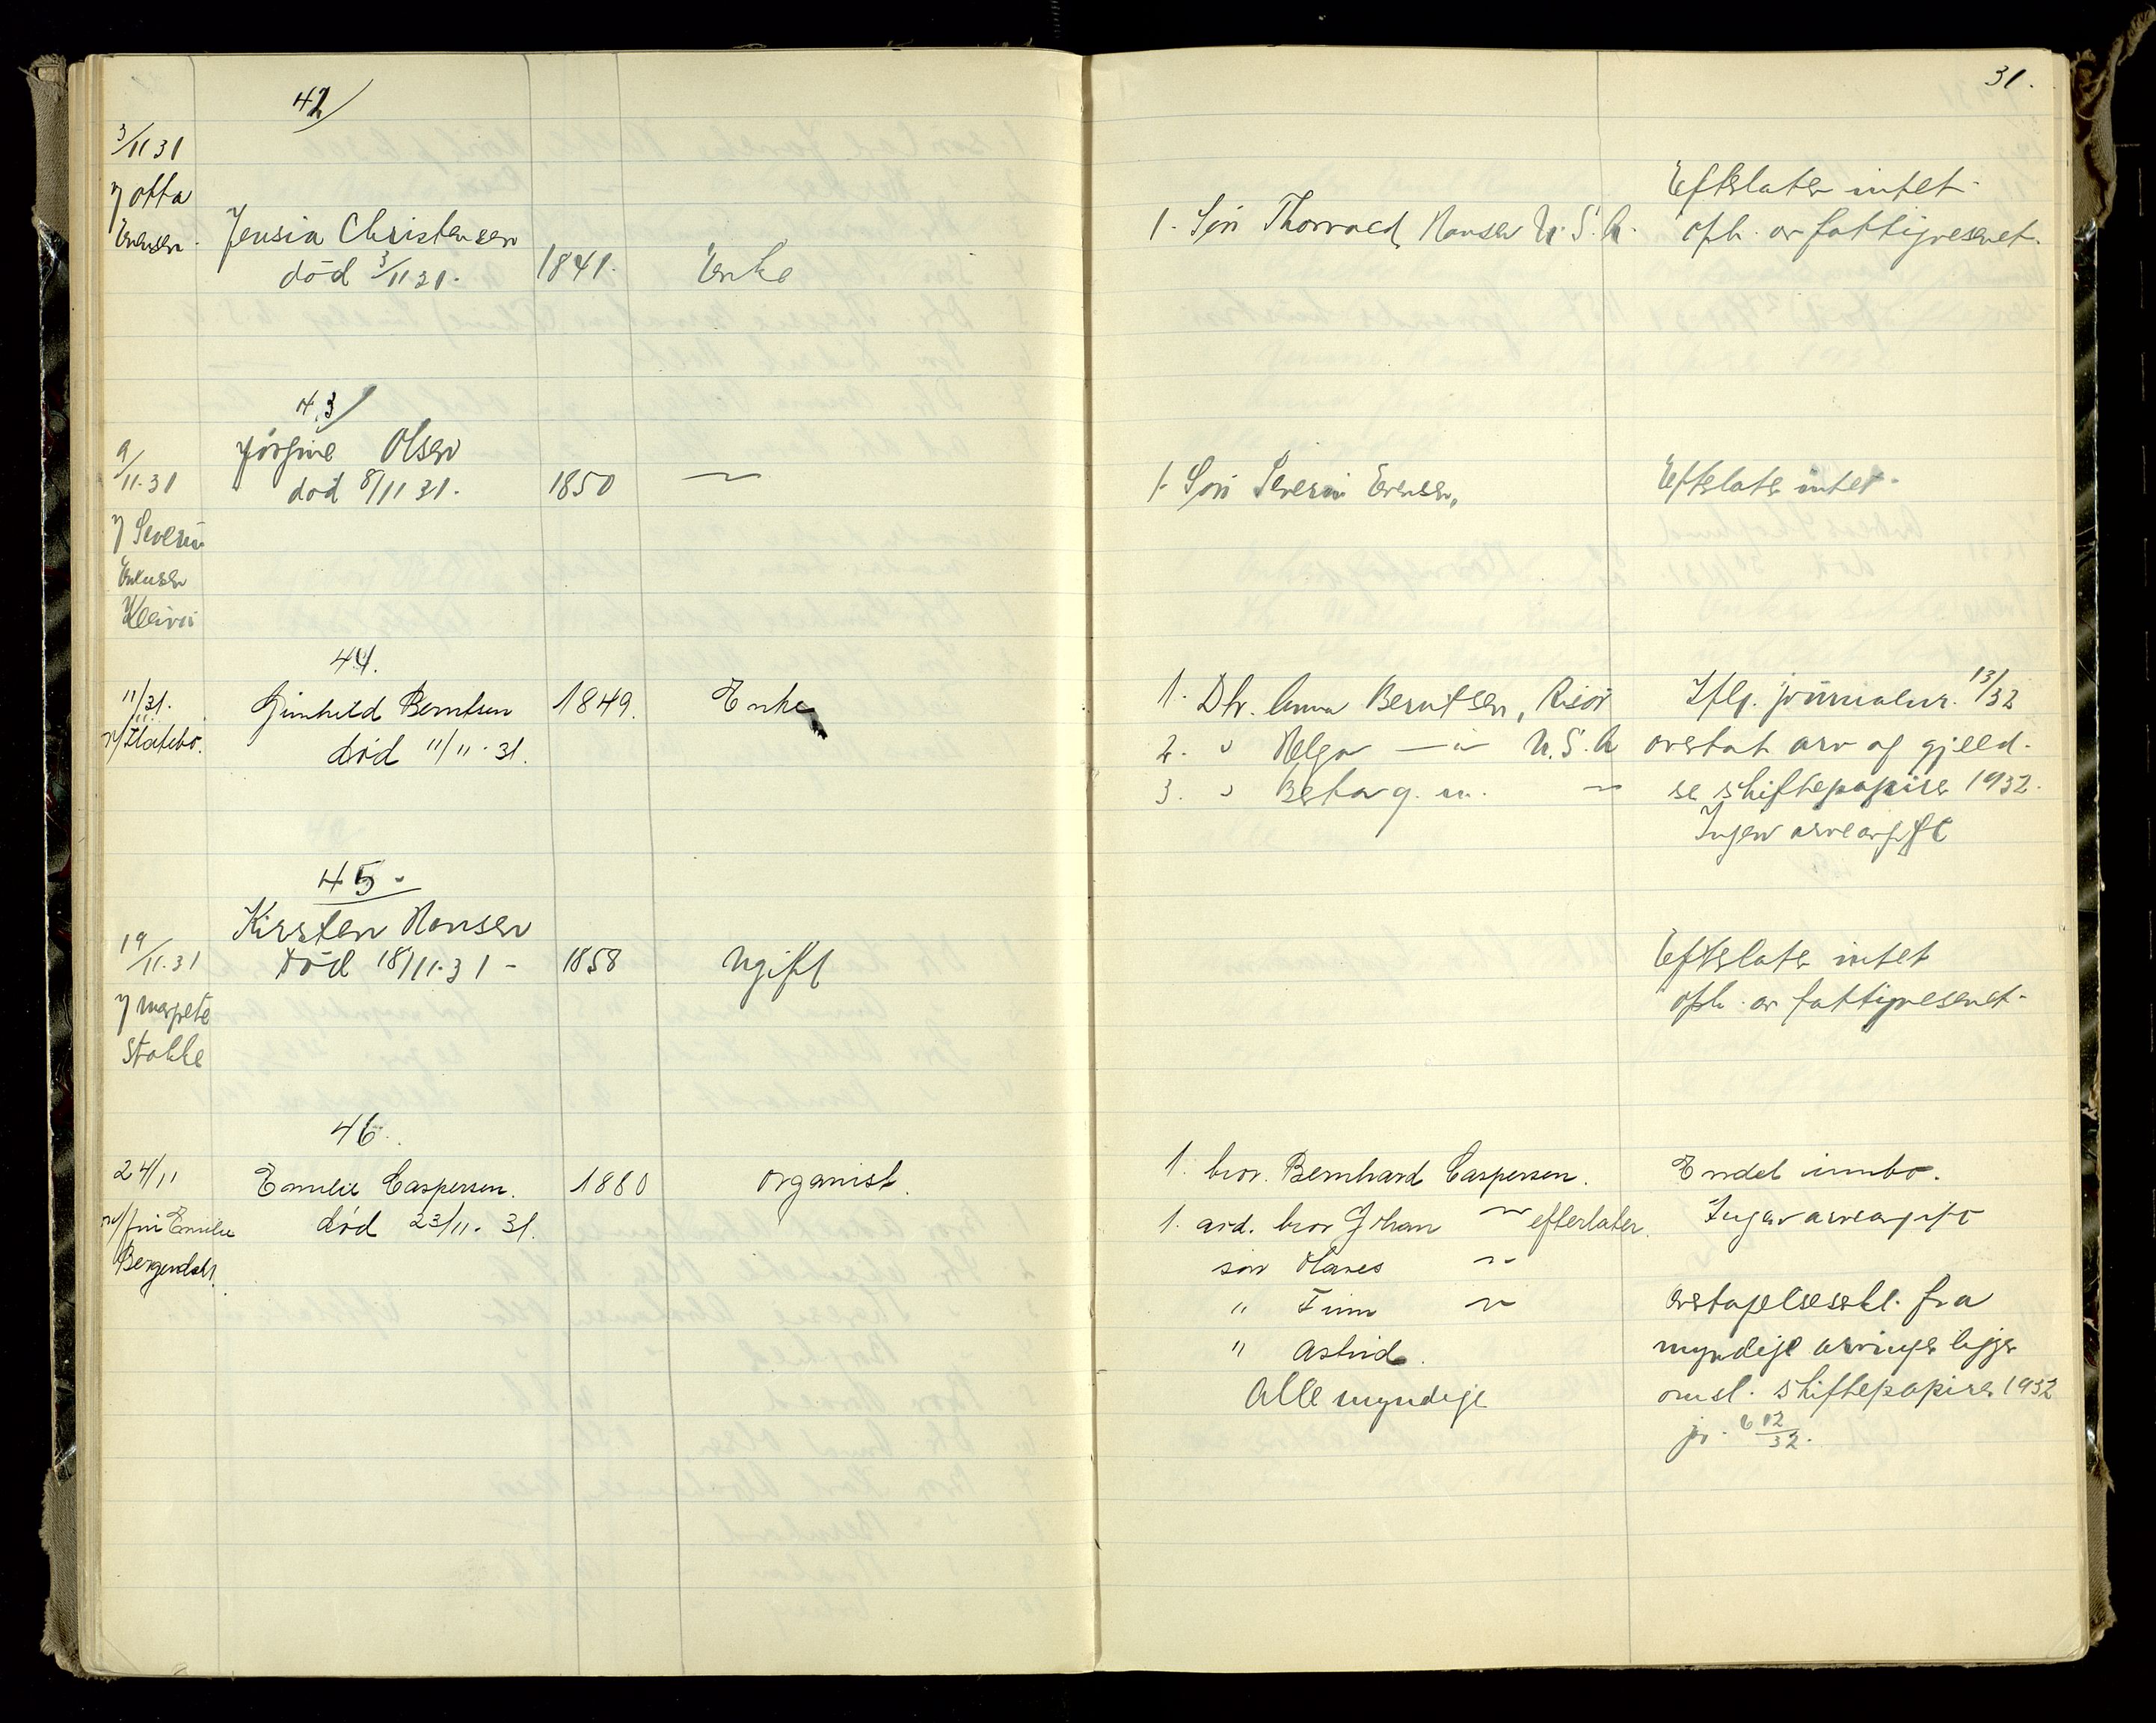 31.
42/
3/11 31
v/ Otta
Evensen.
Jensia Christensen
død 3/11 31.
1841.
Enke
1. Søn Thorvald Hansen U.S.A.
Efterlater intet
oph. av fattigvesenet.
43/
9/11.31
v/ Severin
Evensen
Jørgine Olsen
død 8/11 31.
1850
—
1. Søn Severin Evensen,
Efterlater intet.
44.
11/11 31.
Gunhild Berntsen
død 11/11. 31.
1849.
Enke
1. Dtr. Anna Berntsen, Risør
2. " Helga —"— U.S.A
3. " Berta g. m. —
Iflg. journalnr. 13/32
overtat arv og gjeld.
se skiftepapirer 1932.
Ingen arveavgift
45.
19/11.31
v/ Margrete
Stokke
Kirsten Hansen
død 18/11.31 -
1858
Ugift
Efterlater intet
oph. av fattigvesenet.
46.
24/11
v/ frú Emilie
Bergendahl.
Emilie Caspersen.
død 23/11. 31.
1860
organist.
1. bror. Bernhard Caspersen.
1. avd. bror Johan —"— efterlater.
søn Hans —"—
" Finn —"—
" Astrid.
Alle myndige
Endel innbo.
Ingen arveavgift
Overtagelseserkl. fra
myndige arvinger ligger
omsl. skiftepapirer 1932
jr. 612/32.